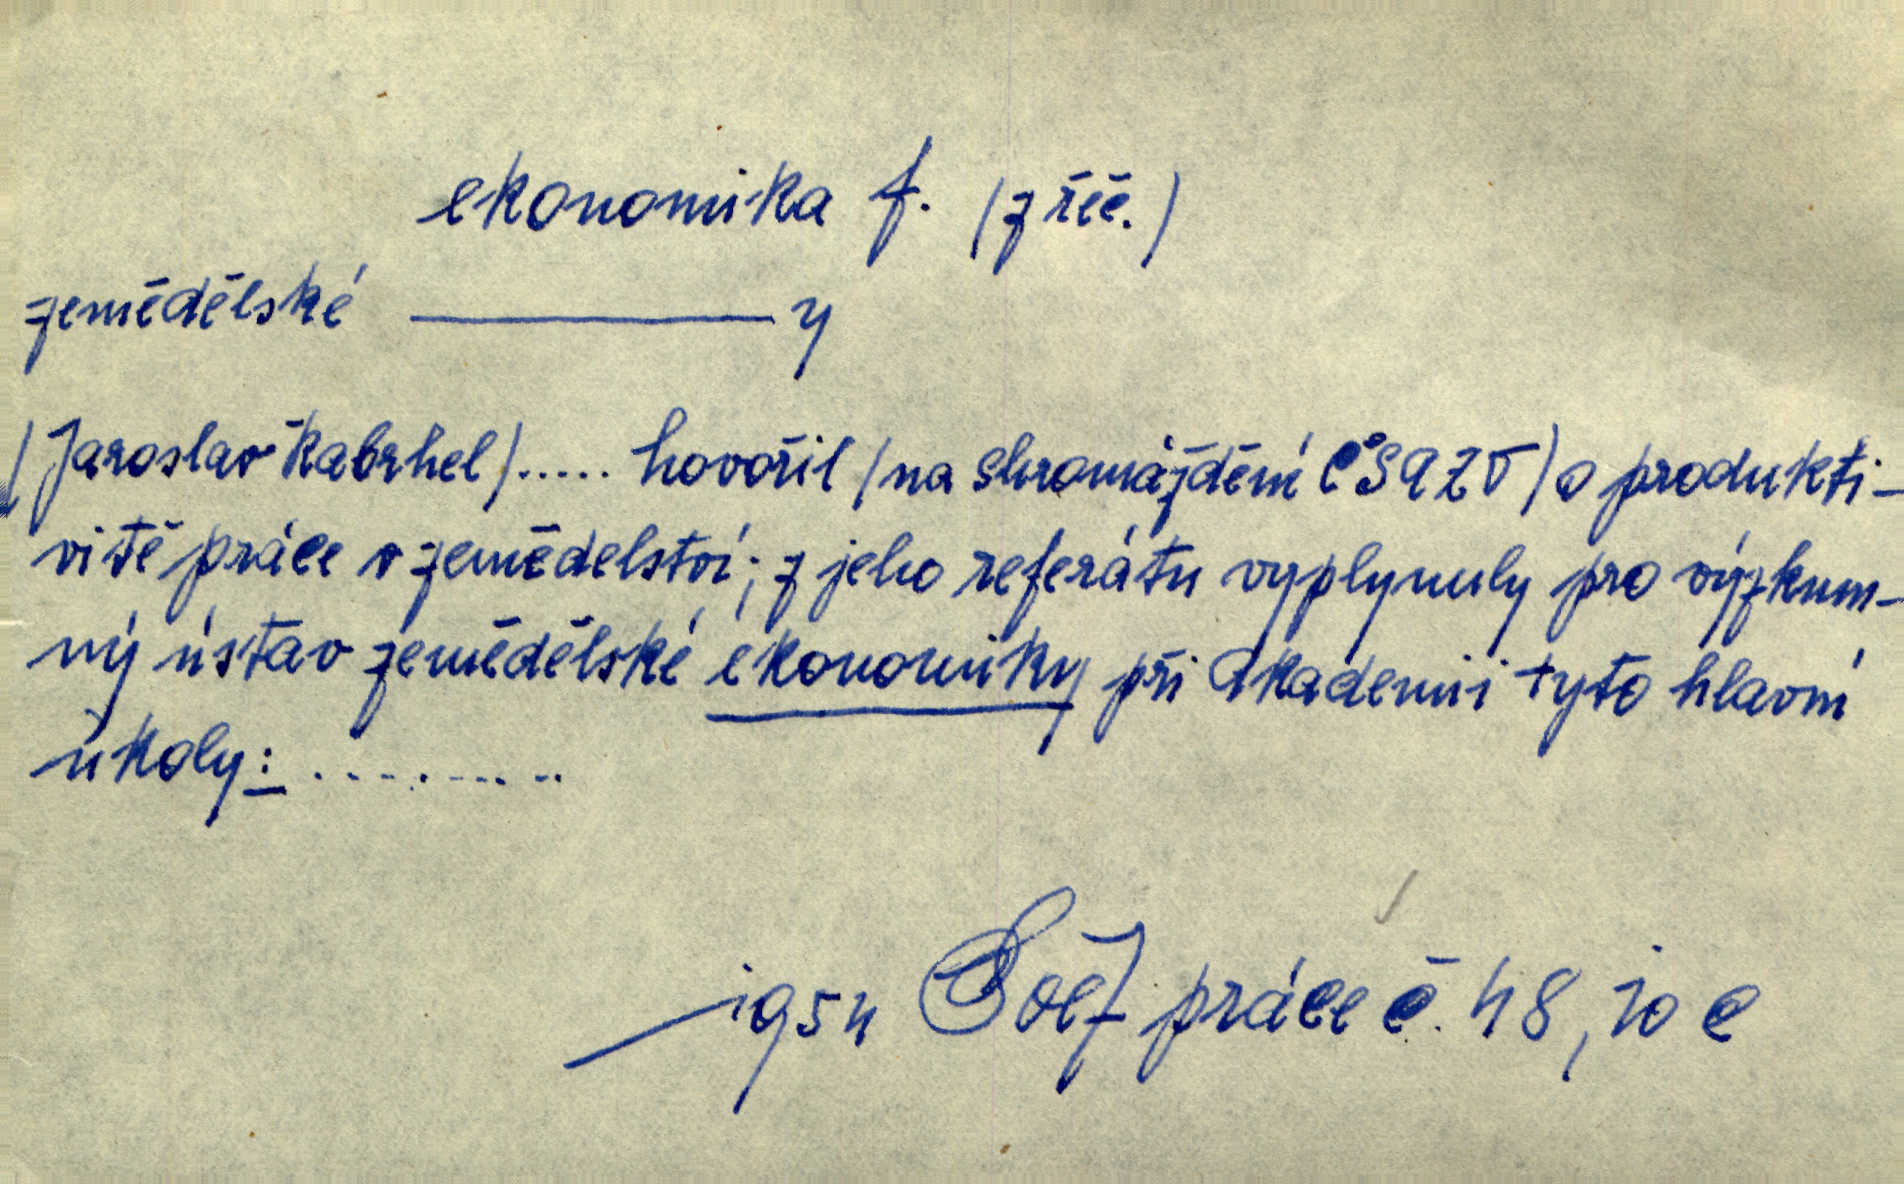 ekonomika f. (z řeč.)
zemědělské ———— y
(Jaroslav Kabrhel) ..... hovořil (na shromáždění ČSAZV) o produkti-
vitě práce v zemědelství; z jeho referátu vyplynuly pro výzkum-
ný ústav zemědělské ekonomiky při Akademii tyto hlavní
úkoly: ..........
1954 práce č. 48, 10 c